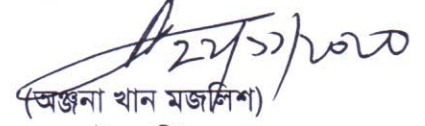 ২২/১১/২০২০
(অঞ্জনা খান মজলিশ)